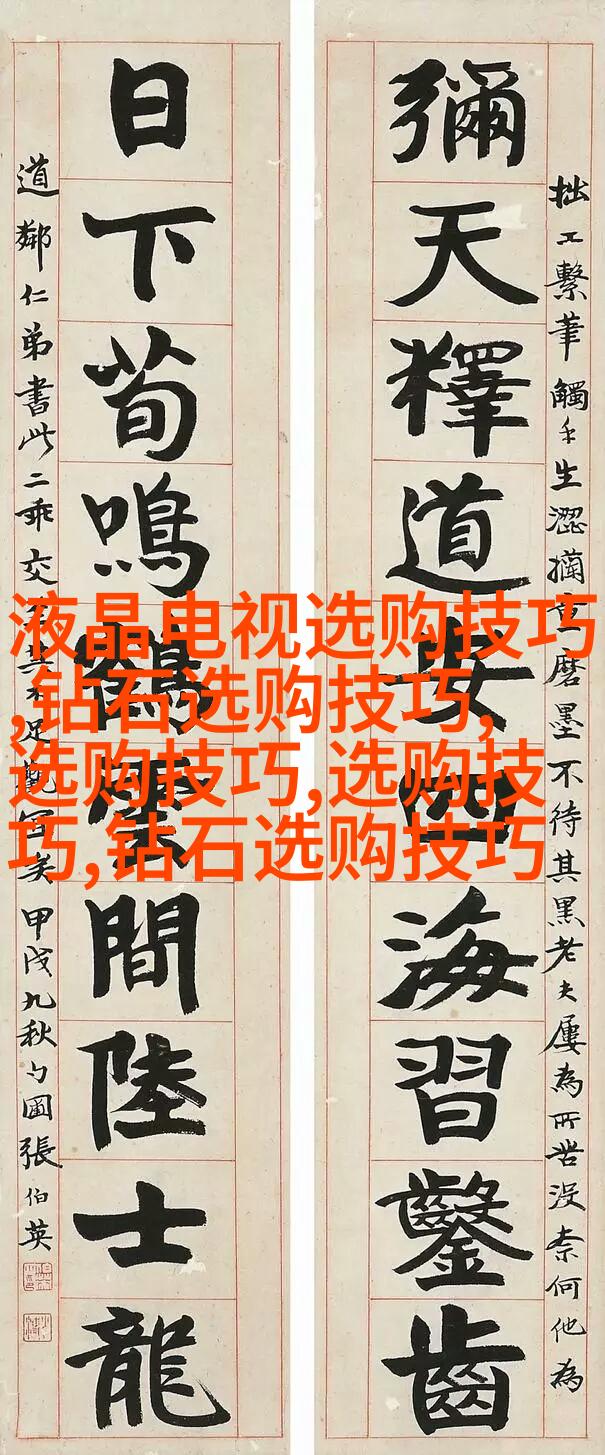 液晶电视选购技巧
,钻石选购技巧,
选购技巧,选购技
巧,钻石选购技巧
拙工繫筆觸手生澀磨墨不待其黑老夫屢為所苦沒柰何他為
彌天釋道安四海習鑿齒
日下荀鳴鶴雲間陸士龍
道鄰仁弟書此二乖交足觀宜矣甲戌九秋勺圃張伯英